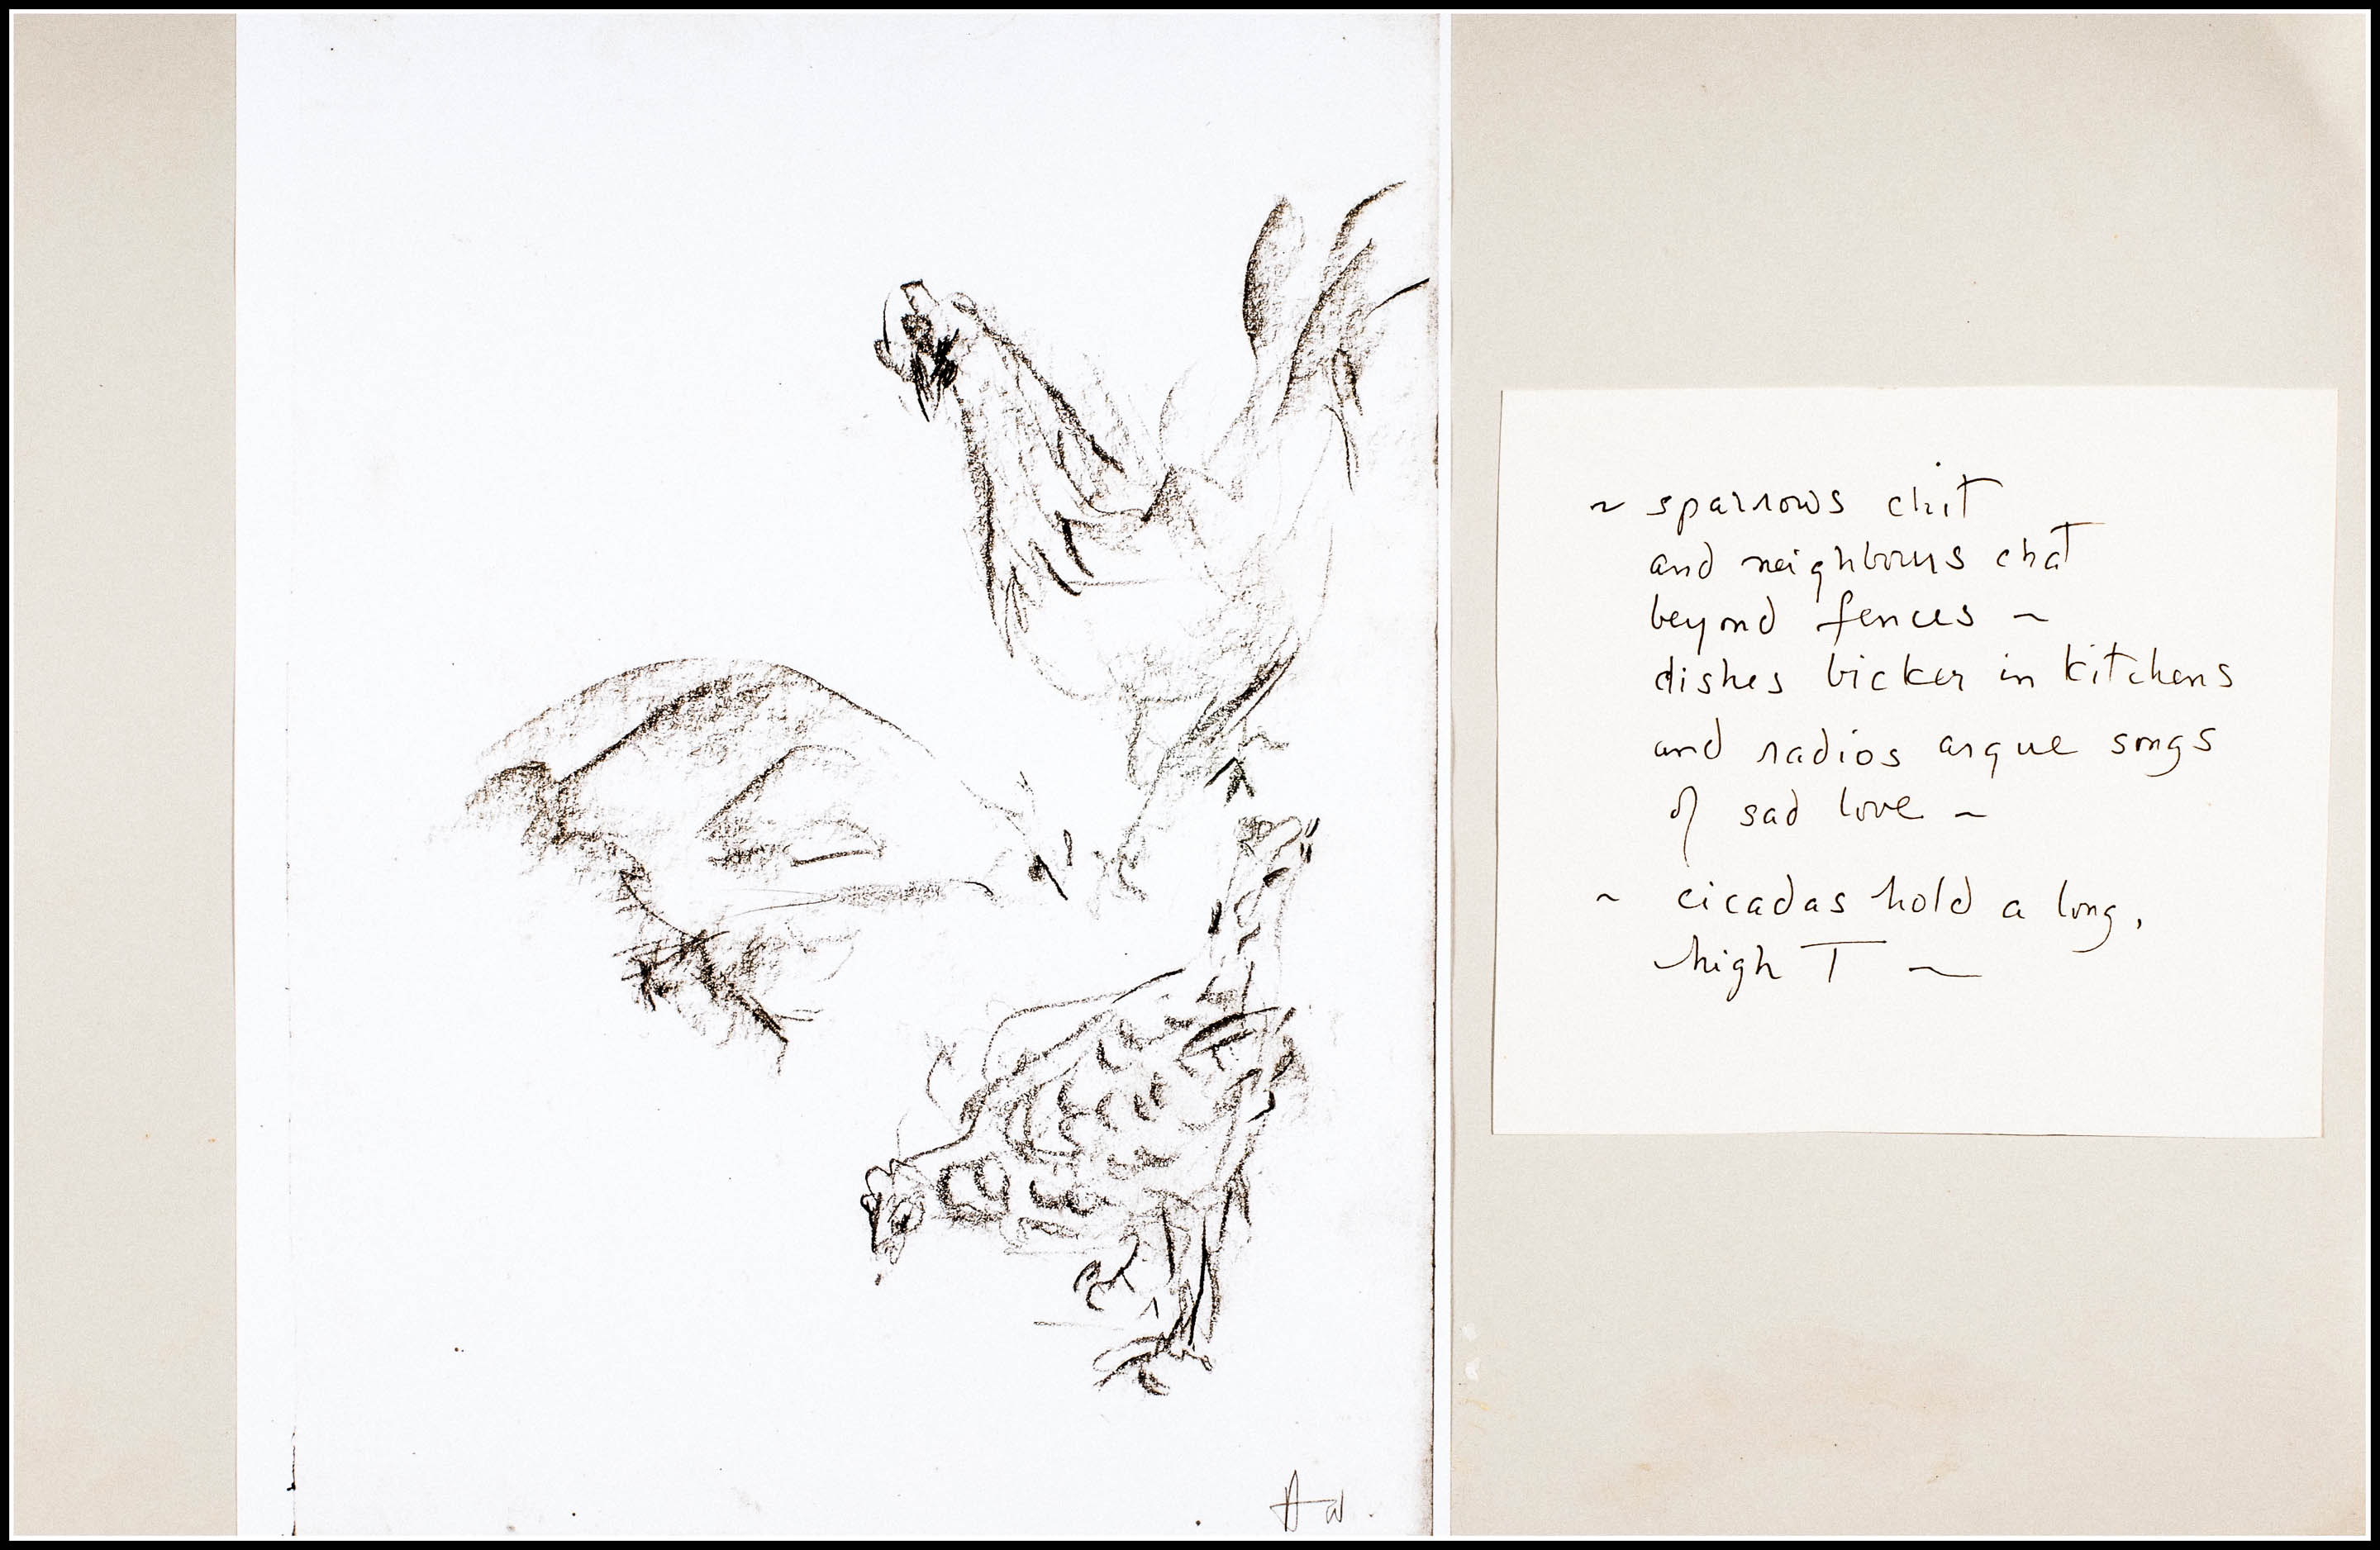 ~ sparrows chit
and neighbours chat
beyond fences ~
dishes bicker in kitchens
and radios argue songs
of sad love ~
~ cicadas hold a long,
high T ~
AW.